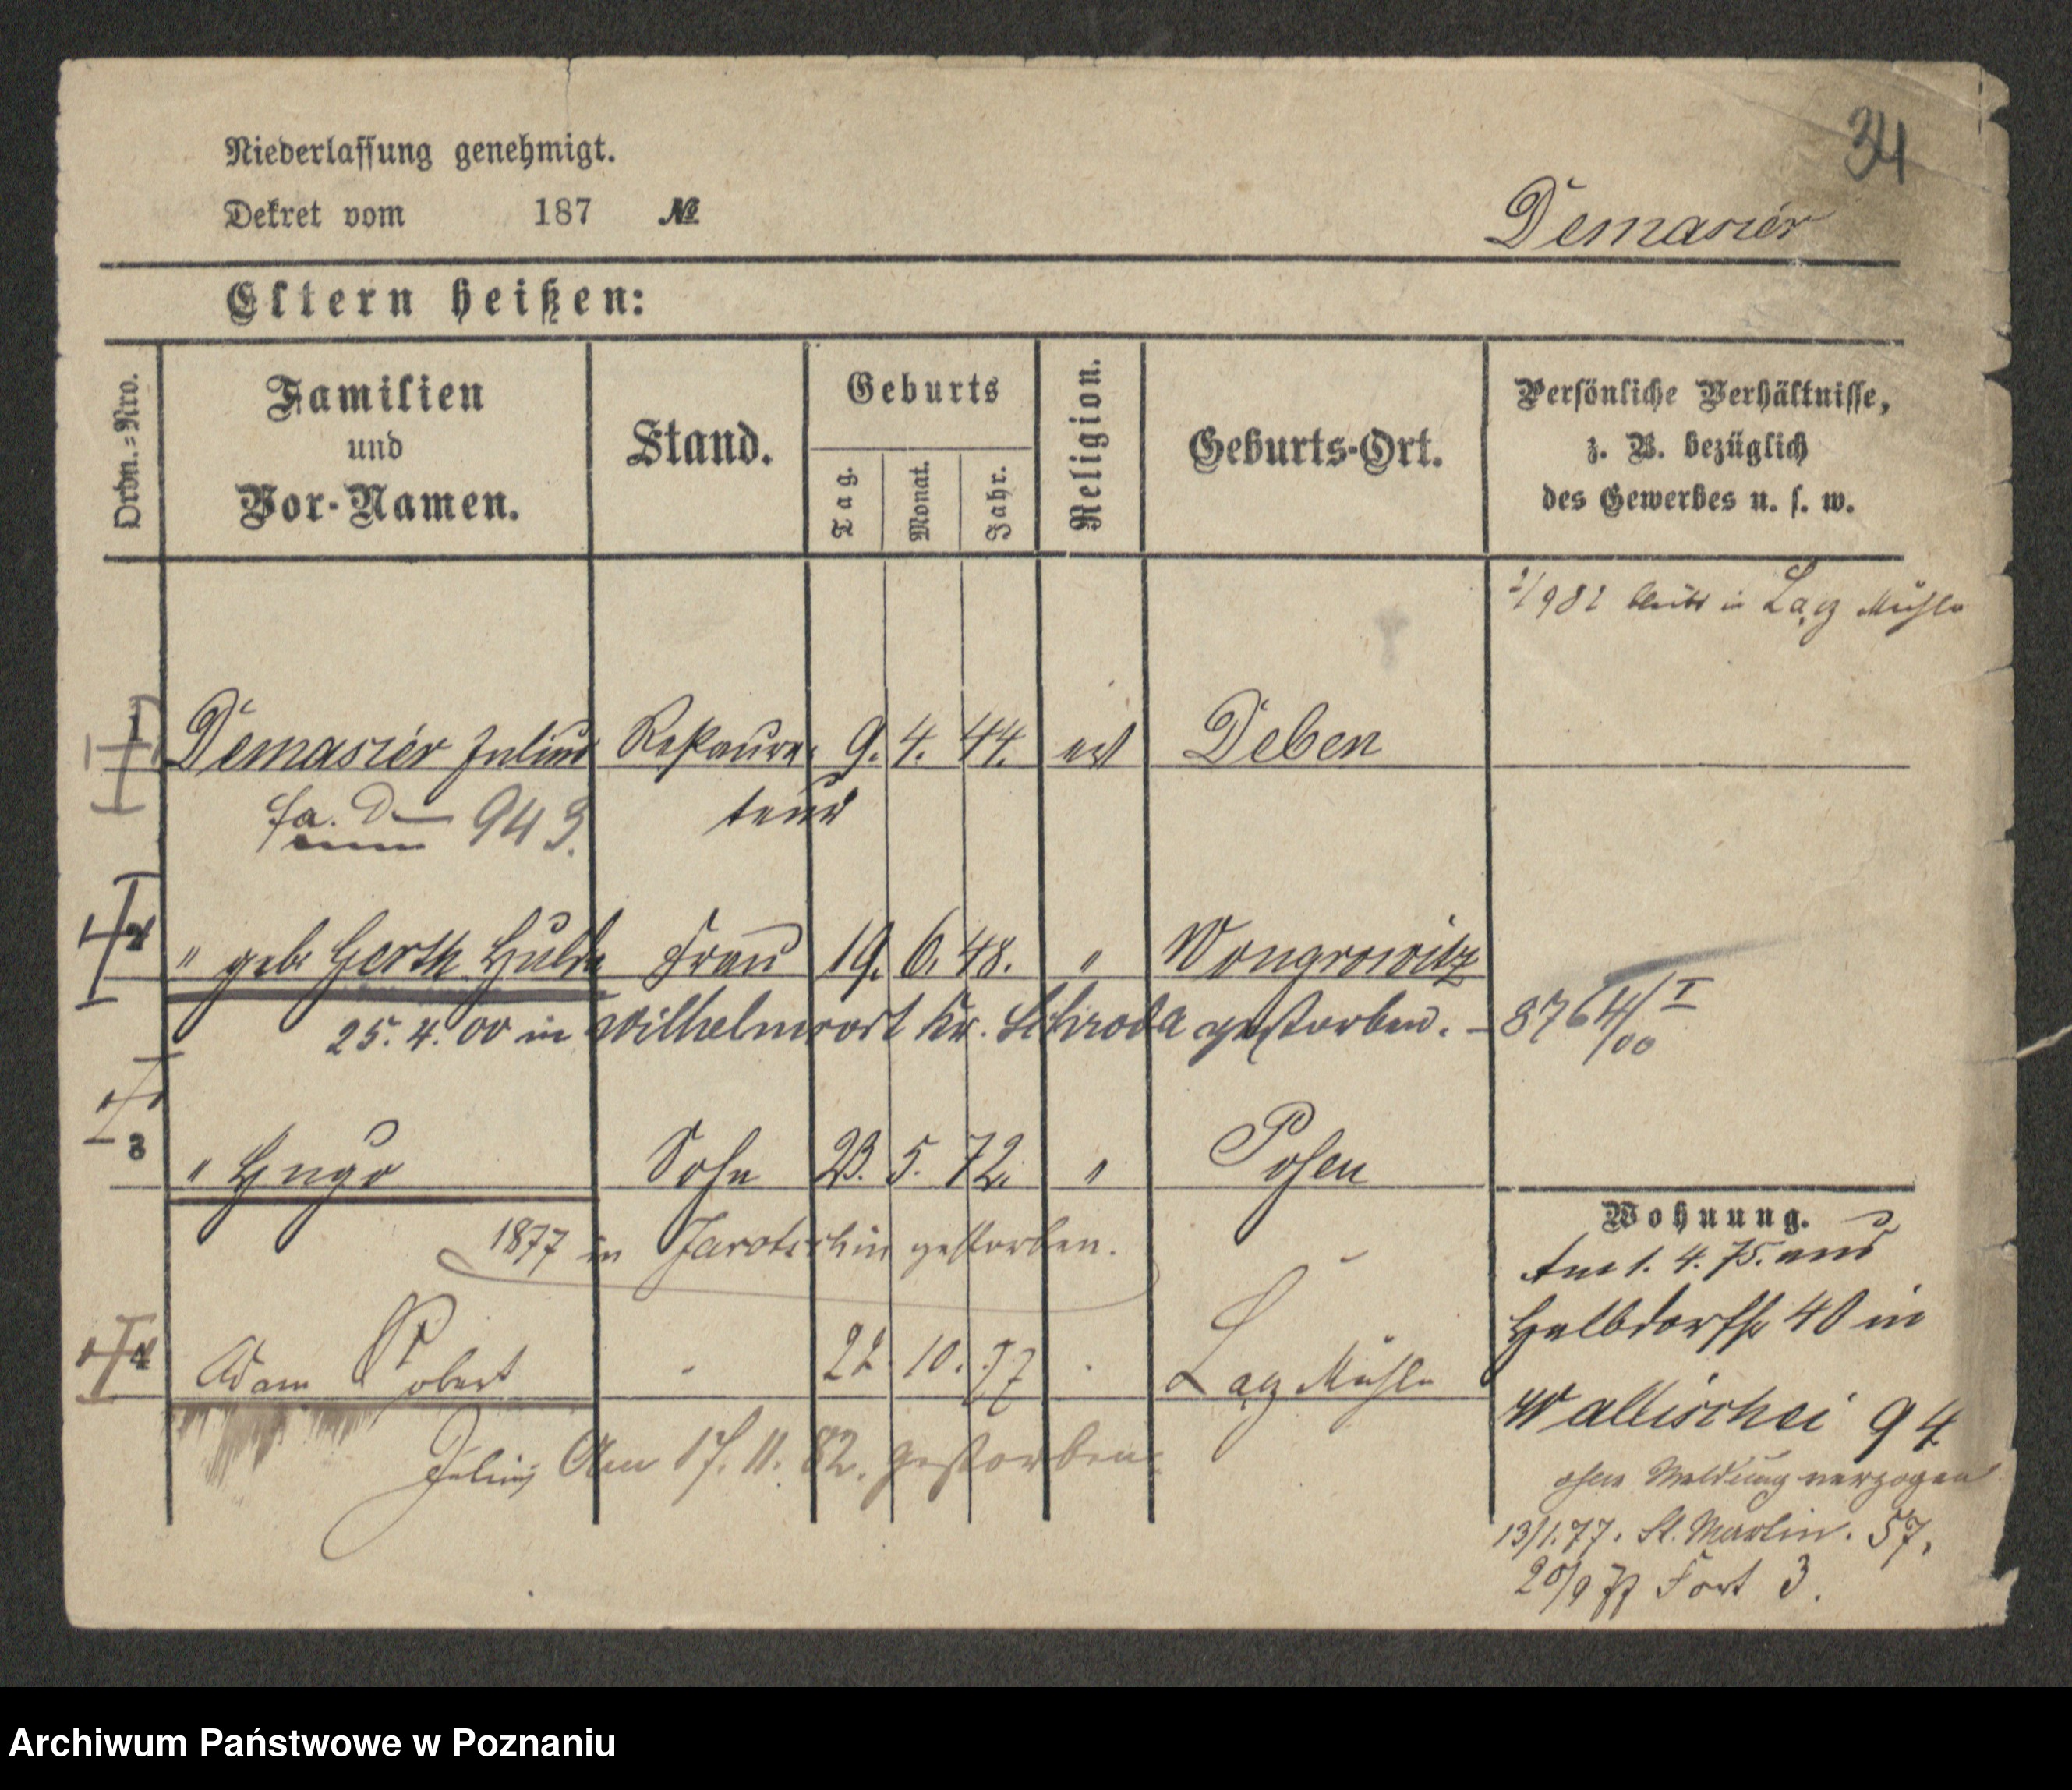 34
Niederlassung genehmigt.
Dekret vom 187 №
Demarier
Eltern heißen:
Ordn.=Nro.
Familien und Vor-Namen.
Stand.
Geburts
Tag.
Monat.
Jahr.
Religion.
Geburts-Ort.
Persönliche Verhältnisse, z. B. bezüglich des Gewerbes u. s. w.
bleibt in Łącz Mühle
1 Demarier Julius Restaura- 9. 4. 44. ev Deben
teur
943.
2 " geb. Gerth Hulda Frau 19. 6. 48. " Wongrowitz
25. 4. 00 in Wilhelmsort Kr. Schroda gestorben. - 8764/I/00
3 " Hugo Sohn 23. 5. 72. " Posen
1877 in Jarotschin gestorben.
4 Adam Robert 22. 10. 77 Łącz Mühle
Julius Am 17. 11. 82. gestorben.
Wohnung.
Am 1. 4. 75. aus
Halbdorfstr 40 in
Wallischei 94
ohne Meldung verzogen
13/1.77. St. Martin. 57.
20/9 77 Fort 3.
Archiwum Państwowe w Poznaniu